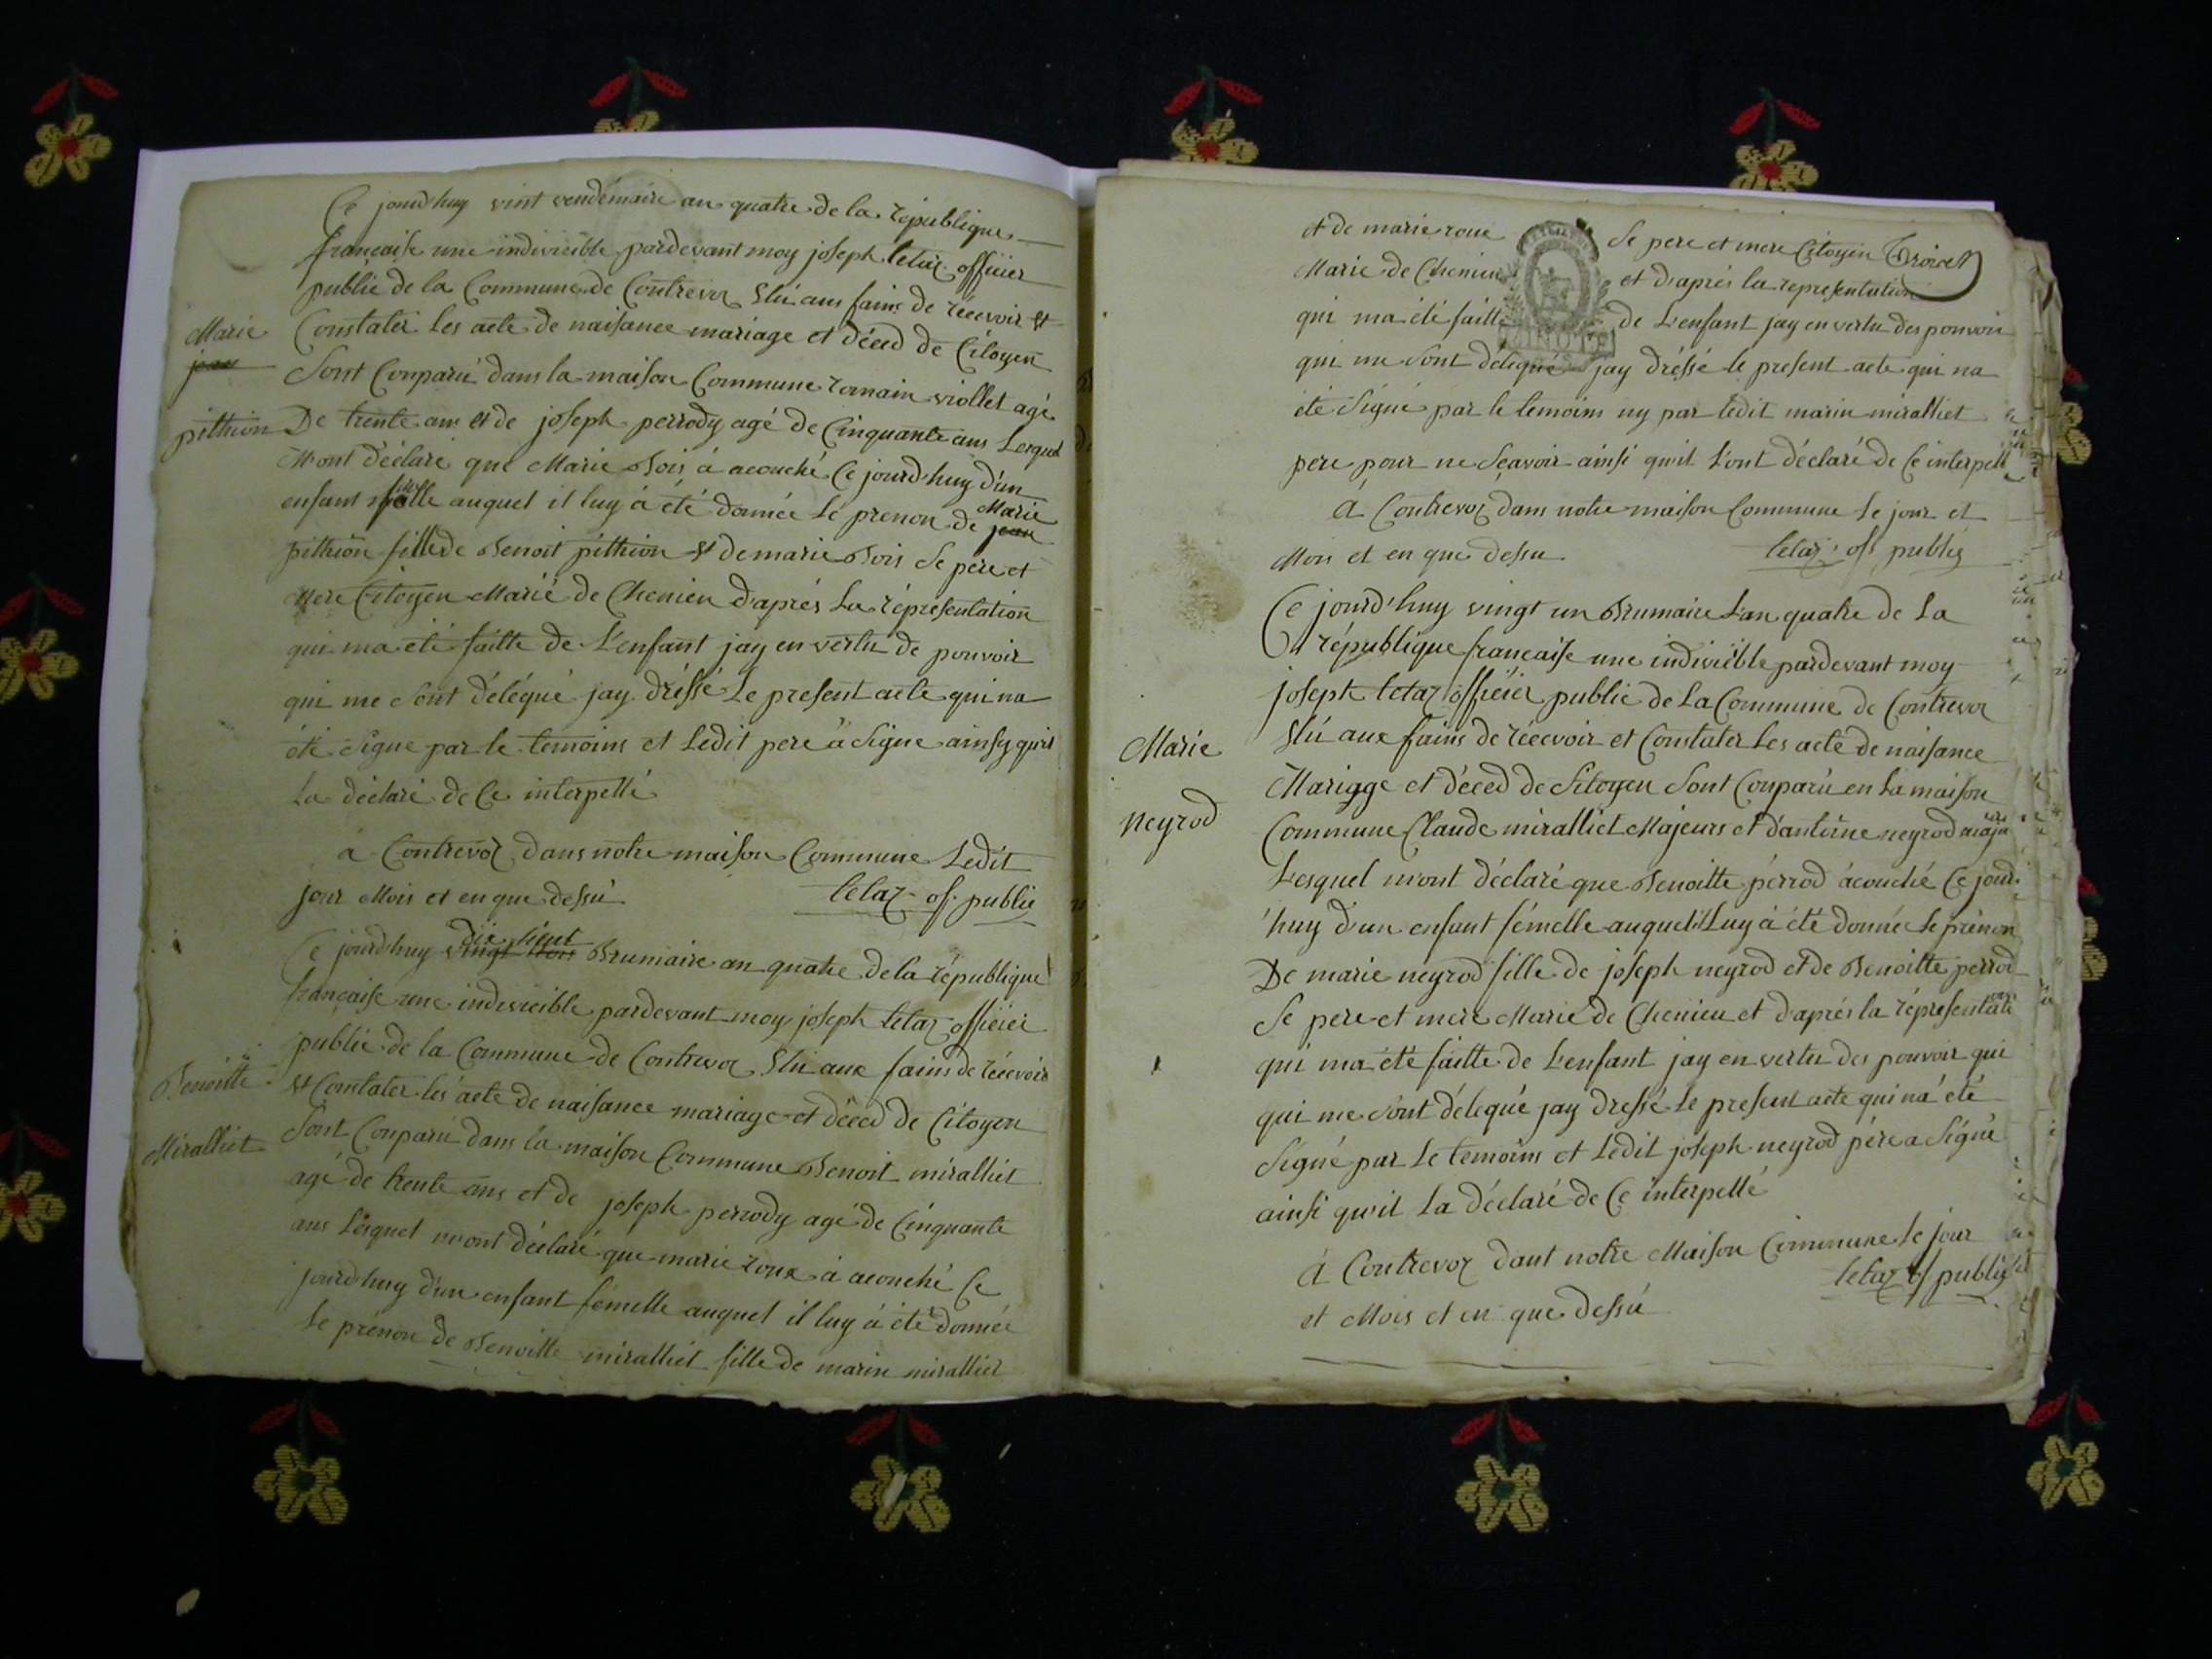 Ce jourd'huy vint vendémaire an quatre de la république
francaise une indivicible pardevant moy joseph letaz officier
public de la Commune de Contrevoz Elu aux fains de récevoir et
Marie
Constater les acte de naisance mariage et décéd de Citoyen
jean
Sont Conparu dans la maison Commune romain viollet agé
pithion
De trente ans et de joseph perrody agé de Cinquante ans Lesquel
M'ont déclaré que Marie Bois à acouché Ce jourd'huy d'un
enfant auquel il luy à été donnée le prenon de Marie jean
pithion fille de Benoit pithion et de marie Bois Se pere et
Mere Citoyen Marié de Chenieu d'aprés La réprésentation
qui ma été faitte de L'enfant jay en vertu de pouvoir
qui me sont délégué jay dréssé Le present acte qui na
été Signe par le temoins et Ledit pere à Signe ainsy qu'il
La déclaré de Ce interpellé
à Contrevoz dans notre maison Commune Ledit
jour Mois et en que dessu letaz of. public
Ce jourd'huy vingt trois dix sieut Brumaire an quatre de la république
francaise une indivicible pardevant moy joseph letaz officier
public de la Commune de Contrevoz Elu aux fains de récevoir
Benoitte
et Constater les acte de naisance mariage et décéd de Citoyen
Miralliet
Sont Conparu dans la maison Commune Benoit miralliet
agé de trente ans et de joseph perrody agé de Cinquante
ans Lesquel m'ont déclaré que marie roux à acouché Ce
jourd'huy d'un enfant fémelle auquel il luy à été donnée
Le prénon de Benoitte miralliet fille de marin miralliet
et de marie roux Se pere et mere Citoyen
Marie de Chenieu et d'aprés la representation
qui ma été faitte de L'enfant jay en vertu des pouvoir
qui me sont délegué jay dréssé le present acte qui na
été Signé par le temoins ny par ledit marin miralliet
pere pour ne Scavoir ainsi qu'il L'ont déclaré de Ce interpellé
à Contrevoz dans notre maison Commune le jour et
Mois et en que dessu letaz of public
Ce jourd'huy vingt un Brumaire L'an quatre de La
république francaise une indivicible pardevant moy
joseph letaz officier public de La Commune de Contrevoz
Marie
Elu aux fains de récevoir et Constater Les acte de naisance
Mariagge et décéd de Sitoyen Sont Conparu en La maison
Neyrod
Commune Claude miralliet Majeurs et d'antoine neyrod majeur
Lesquel m'ont déclaré que Benoitte pérrod àcouché Ce jourd
huy d'un enfant fémelle auquel il Luy à été donnée Le prénon
De marie neyrod fille de joseph neyrod et de Benoitte perrod
Se pere et mere Marie de Chenieu et d'aprés la réprésentation
qui ma été faitte de L'enfant jay en vertu des pouvoir qui
qui me sont délegué jay dressé Le present acte qui na été
Signé par Le temoins et Ledit joseph neyrod pére a Signé
ainsi qu'il La déclaré de Ce interpellé
à Contrevoz dant notre Maison Commune Le jour
et Mois et en que dessu letaz of public